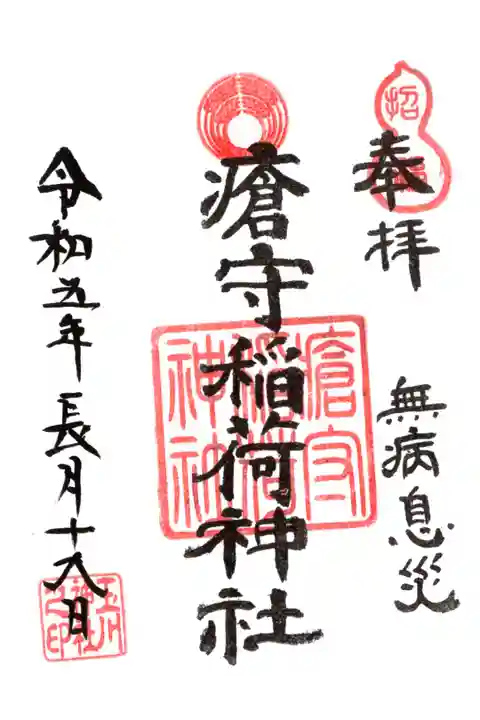 奉拝
無病息災
瘡守稲荷神社
令和五年長月十八日
瘡守
稲荷
神社
玉川
神社
之印